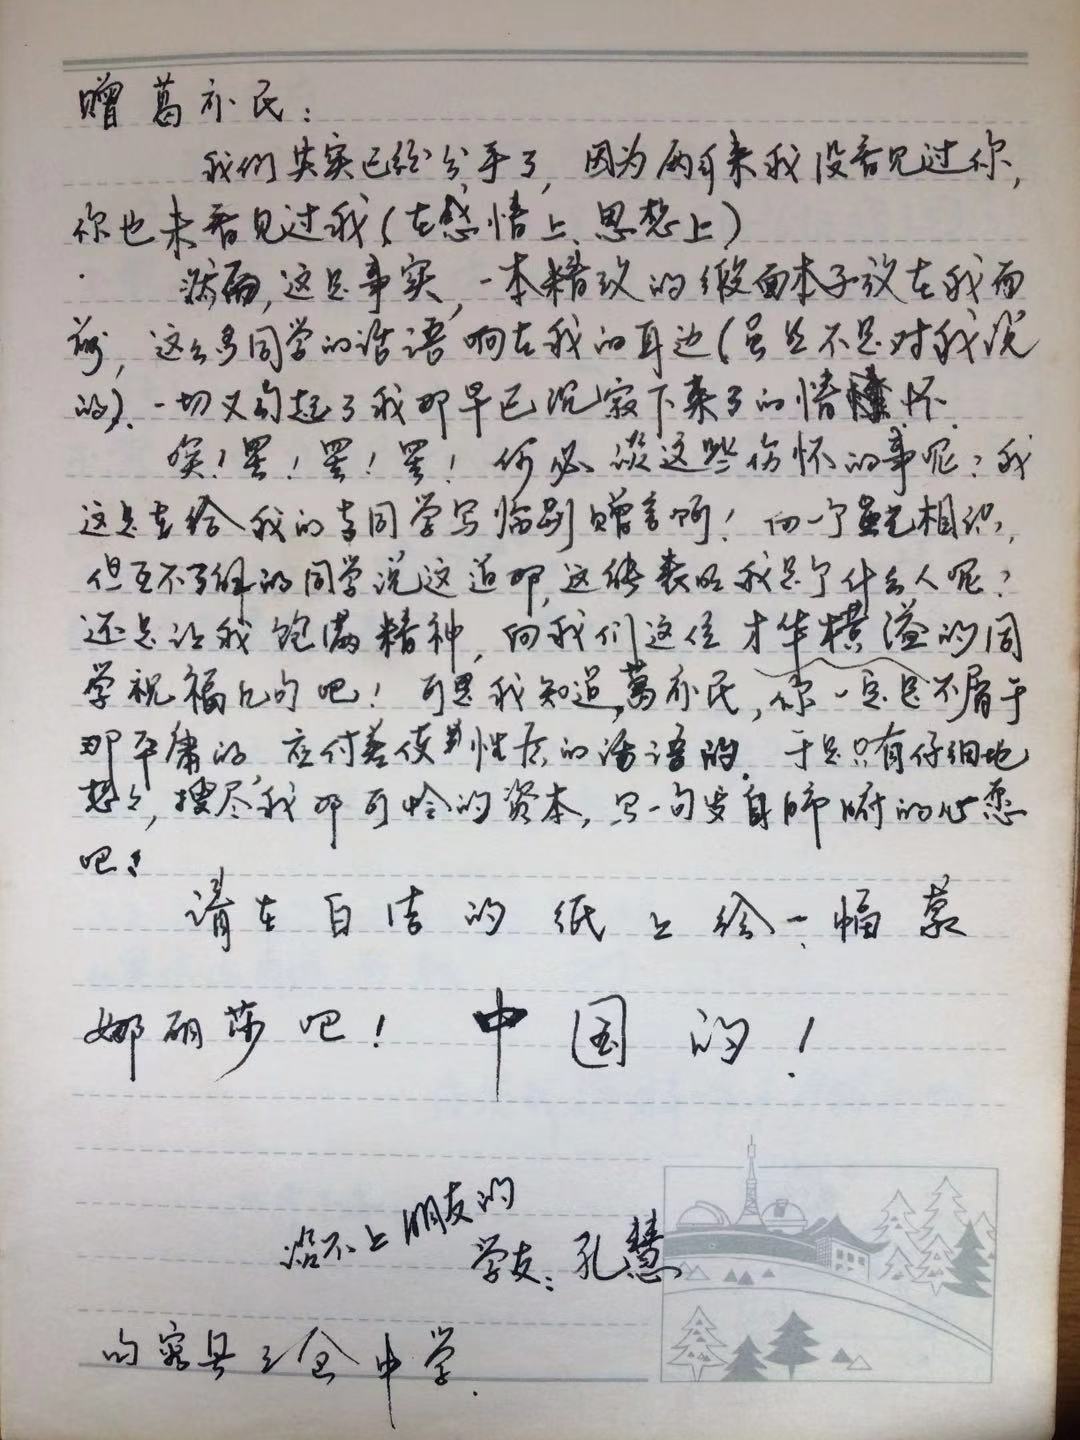 赠葛亦民：
我们其实已经分手了，因为两年来我没看见过你，
你也未看见过我（在感情上、思想上）
然而，这是事实，一本精致的缎面本子放在我面
前，这么多同学的话语响在我的耳边（虽是不是对我说
的）．一切又勾起了我那早已沉寂下来了的情怀．
唉！罢！罢！罢！何必谈这些伤怀的事呢？我
这是在给我的学写临别赠言啊！向一个虽已相识，
但互不了解的同学说这道那，这能表明我是个什么人呢？
还是让我饱满精神，向我们这位才华横溢的同
学祝福几句吧！可是我知道，葛亦民，你一定是不屑于
那平庸的，应付差使性质的话语的．于是只有仔细地
想想，搜尽我那可怜的资本，写一句发自肺腑的心愿
吧！
请在白洁的纸上绘一幅蒙
娜丽莎吧！中国的！
沾不上朋友的
学友：孔慧
句容县三仓中学．